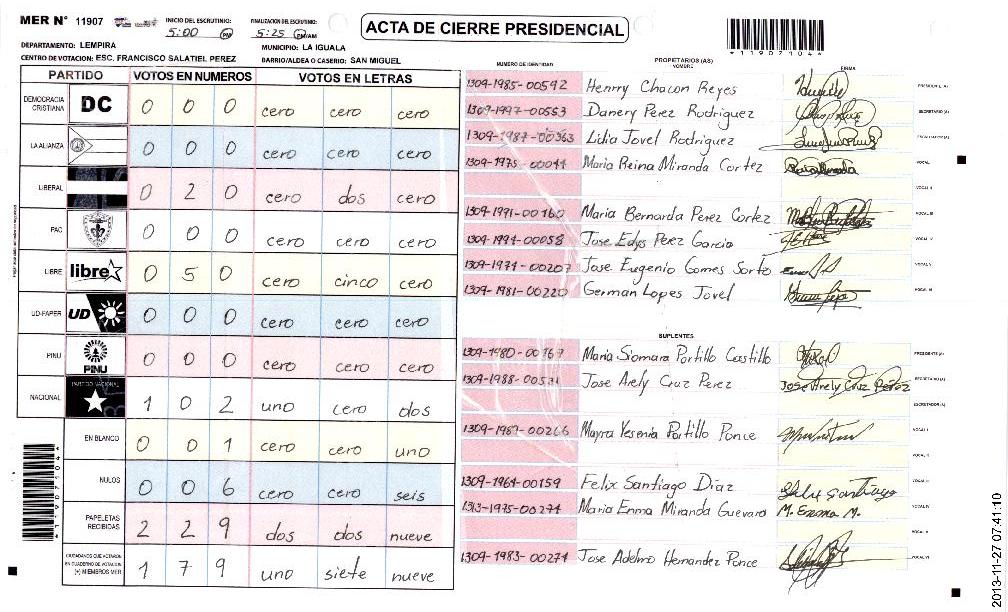 MER N° 11907
INICIO DEL ESCRUTINIO: 5:00 PM
FINALIZACION DEL ESCRUTINIO: 5:25 PM/AM
ACTA DE CIERRE PRESIDENCIAL
*119071044*
DEPARTAMENTO: LEMPIRA
MUNICIPIO: LA IGUALA
CENTRO DE VOTACION: ESC. FRANCISCO SALATIEL PEREZ
BARRIO/ALDEA O CASERIO: SAN MIGUEL
PARTIDO VOTOS EN NUMEROS VOTOS EN LETRAS
DEMOCRACIA CRISTIANA DC 0 0 0 cero cero cero
LA ALIANZA 0 0 0 cero cero cero
LIBERAL 0 2 0 cero dos cero
PAC 0 0 0 cero cero cero
LIBRE libre 0 5 0 cero cinco cero
UD-FAPER UD 0 0 0 cero cero cero
PINU PINU 0 0 0 cero cero cero
NACIONAL PARTIDO NACIONAL 1 0 2 uno cero dos
EN BLANCO 0 0 1 cero cero uno
NULOS 0 0 6 cero cero seis
PAPELETAS RECIBIDAS 2 2 9 dos dos nueve
CIUDADANOS QUE VOTARON EN CUADERNO DE VOTACION (+) MIEMBROS MER 1 7 9 uno siete nueve
NUMERO DE IDENTIDAD PROPIETARIOS (AS) NOMBRE FIRMA
1309-1985-00592 Henrry Chacon Reyes PRESIDENTE (A)
1309-1997-00553 Danery Perez Rodriguez SECRETARIO (A)
1309-1987-00363 Lidia Jovel Rodriguez ESCRUTADOR (A)
1309-1975-00044 Maria Reina Miranda Cortez VOCAL I
VOCAL II
1309-1991-00160 Maria Bernarda Perez Cortez VOCAL III
1309-1994-00058 Jose Edys Perez Garcia VOCAL IV
1309-1974-00207 Jose Eugenio Gomes Sorto VOCAL V
1309-1981-00220 German Lopes Jovel VOCAL VI
SUPLENTES
1309-1980-00167 Maria Siomara Portillo Castillo PRESIDENTE (A)
1309-1988-00531 Jose Arely Cruz Perez Jose Arely Cruz Perez SECRETARIO (A)
ESCRUTADOR (A)
1309-1987-00266 Mayra Yesenia Portillo Ponce VOCAL I
VOCAL II
1309-1964-00159 Felix Santiago Diaz Felix Santiago VOCAL III
1313-1975-00274 Maria Enma Miranda Guevara M. Enma M. VOCAL IV
VOCAL V
1309-1983-00274 Jose Adelmo Hernandez Ponce VOCAL VI
*119071044*
2013-11-27 07:41:10